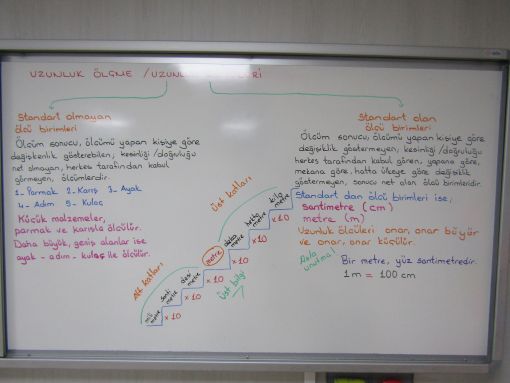 UZUNLUK ÖLÇME / UZUNLUK
Standart olmayan
ölçü birimleri
Ölçüm sonucu, ölçümü yapan kişiye göre
değişkenlik gösterebilen, kesinliği/doğruluğu
net olmayan, herkes tarafından kabul
görmeyen, ölçümlerdir.
1- Parmak 2- Karış 3- Ayak
4- Adım 5- Kulaç
Küçük malzemeler,
parmak ve karışla ölçülür.
Daha büyük, geniş alanlar ise
ayak - adım - kulaç ile ölçülür.
Üst katları
kilo metre
hekto metre
x10
deka metre
x10
metre
x10
Alt katları
desi metre
x10
santi metre
x10
mili metre
x10
Üst bilgi
Standart olan
ölçü birimleri
Ölçüm sonucu, ölçümü yapan kişiye göre
değişiklik göstermeyen, kesinliği/doğruluğu
herkes tarafından kabul gören, yapana göre,
mekana göre, hatta ülkeye göre değişiklik
göstermeyen, sonucu net olan ölçü birimleridir.
Standart olan ölçü birimleri ise;
santimetre (cm)
metre (m)
Uzunluk ölçüleri onar, onar büyür
ve onar, onar küçülür.
Asla unutma!
Bir metre, yüz santimetredir.
1m = 100 cm